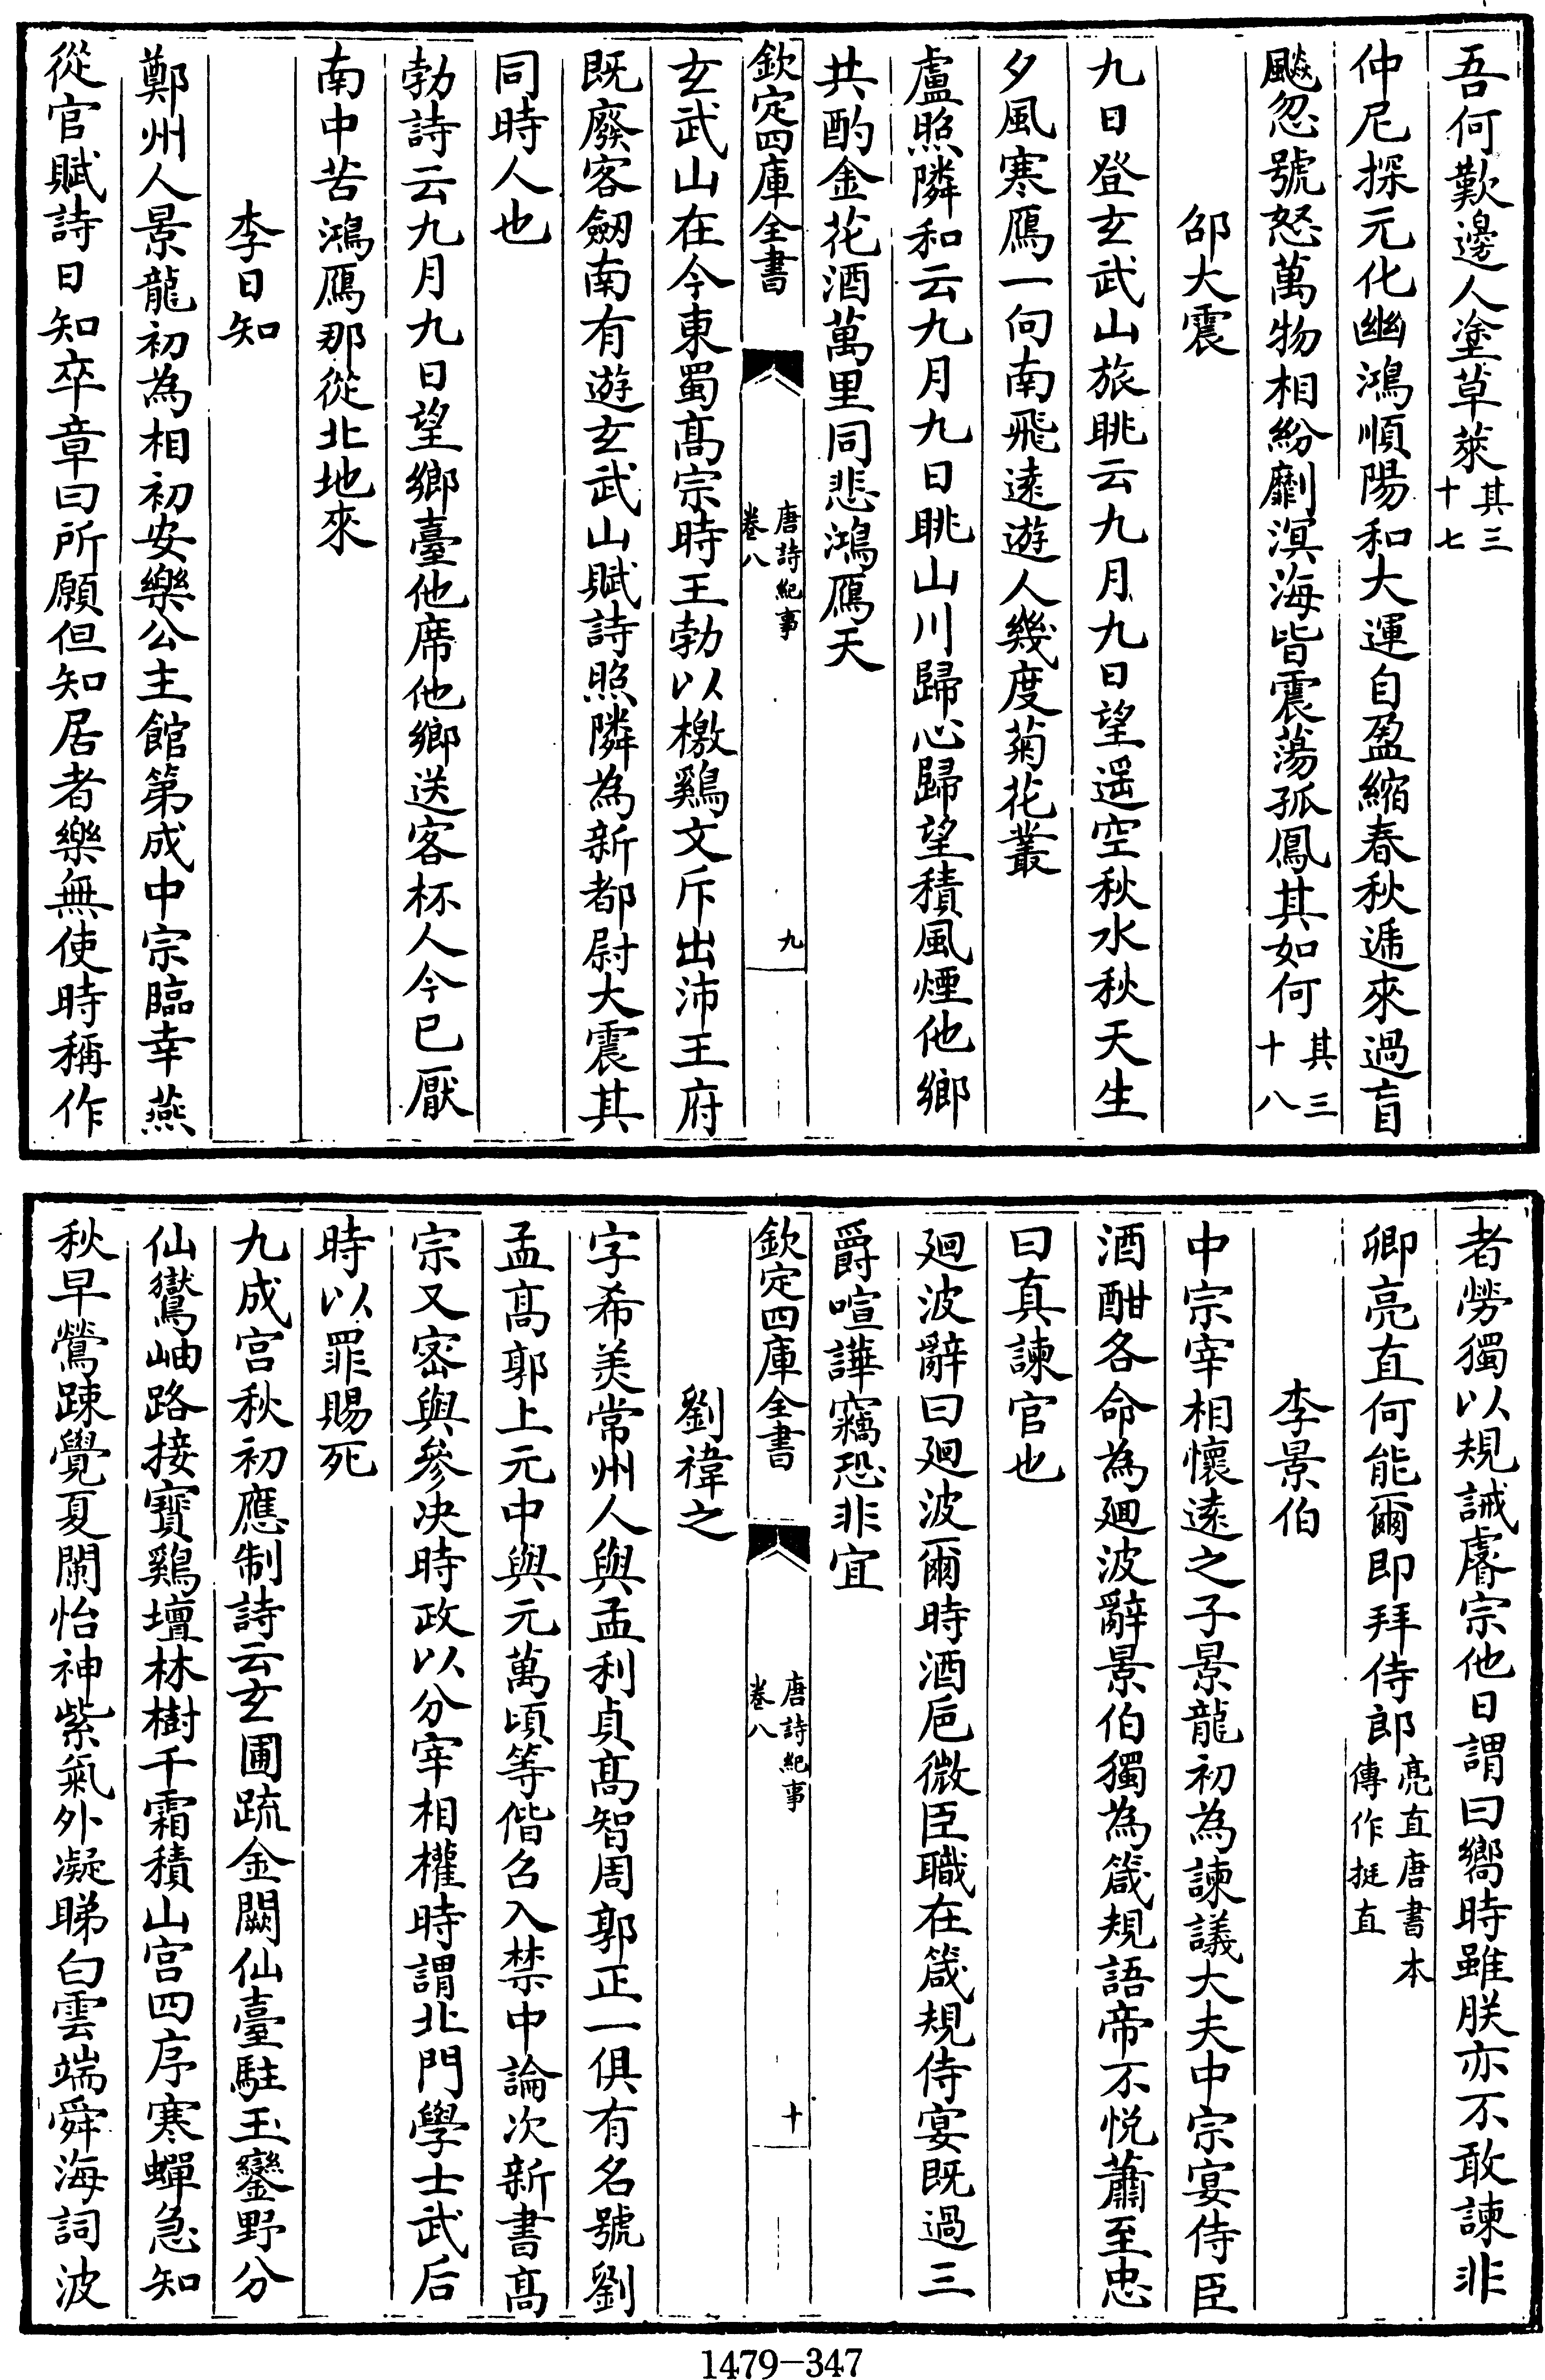 吾何歎邊人塗草萊其三十七
仲尼探元化幽鴻順陽和大運自盈縮春秋遞來過盲
飈忽號怒萬物相紛劘溟海皆震蕩孤鳳其如何其三十八
邵大震
九日登玄武山旅眺云九月九日望遥空秋水秋天生
夕風寒鴈一向南飛逺遊人幾度菊花叢
盧照隣和云九月九日眺山川歸心歸望積風煙他鄉
共酌金花酒萬里同悲鴻鴈天
欽定四庫全書
唐詩紀事
卷八
九
玄武山在今東蜀髙宗時王勃以檄鷄文斥出沛王府
既廢客劒南有遊玄武山賦詩照隣為新都尉大震其
同時人也
勃詩云九月九日望鄉臺他席他鄉送客杯人今已厭
南中苦鴻鴈那從北地來
李日知
鄭州人景龍初為相初安樂公主館第成中宗臨幸燕
從官賦詩日知卒章曰所願但知居者樂無使時稱作
者勞獨以規誡睿宗他日謂曰嚮時雖朕亦不敢諫非
卿亮直何能爾即拜侍郎亮直唐書本傳作挺直
李景伯
中宗宰相懷逺之子景龍初為諫議大夫中宗宴侍臣
酒酣各命為廻波辭景伯獨為箴規語帝不悦蕭至忠
曰真諫官也
廻波辭曰廻波爾時酒巵微臣職在箴規侍宴既過三
爵喧譁竊恐非宜
欽定四庫全書
唐詩紀事
卷八
十
劉禕之
字希美常州人與孟利貞髙智周郭正一俱有名號劉
孟髙郭上元中與元萬頃等偕召入禁中論次新書髙
宗又宻與參决時政以分宰相權時謂北門學士武后
時以罪賜死
九成宫秋初應制詩云玄圃疏金闕仙臺駐玉鑾野分
仙鸑岫路接寶鷄壇林樹千霜積山宫四序寒蟬急知
秋早鶯踈覺夏闌怡神紫氣外凝睇白雲端舜海詞波
1479-347